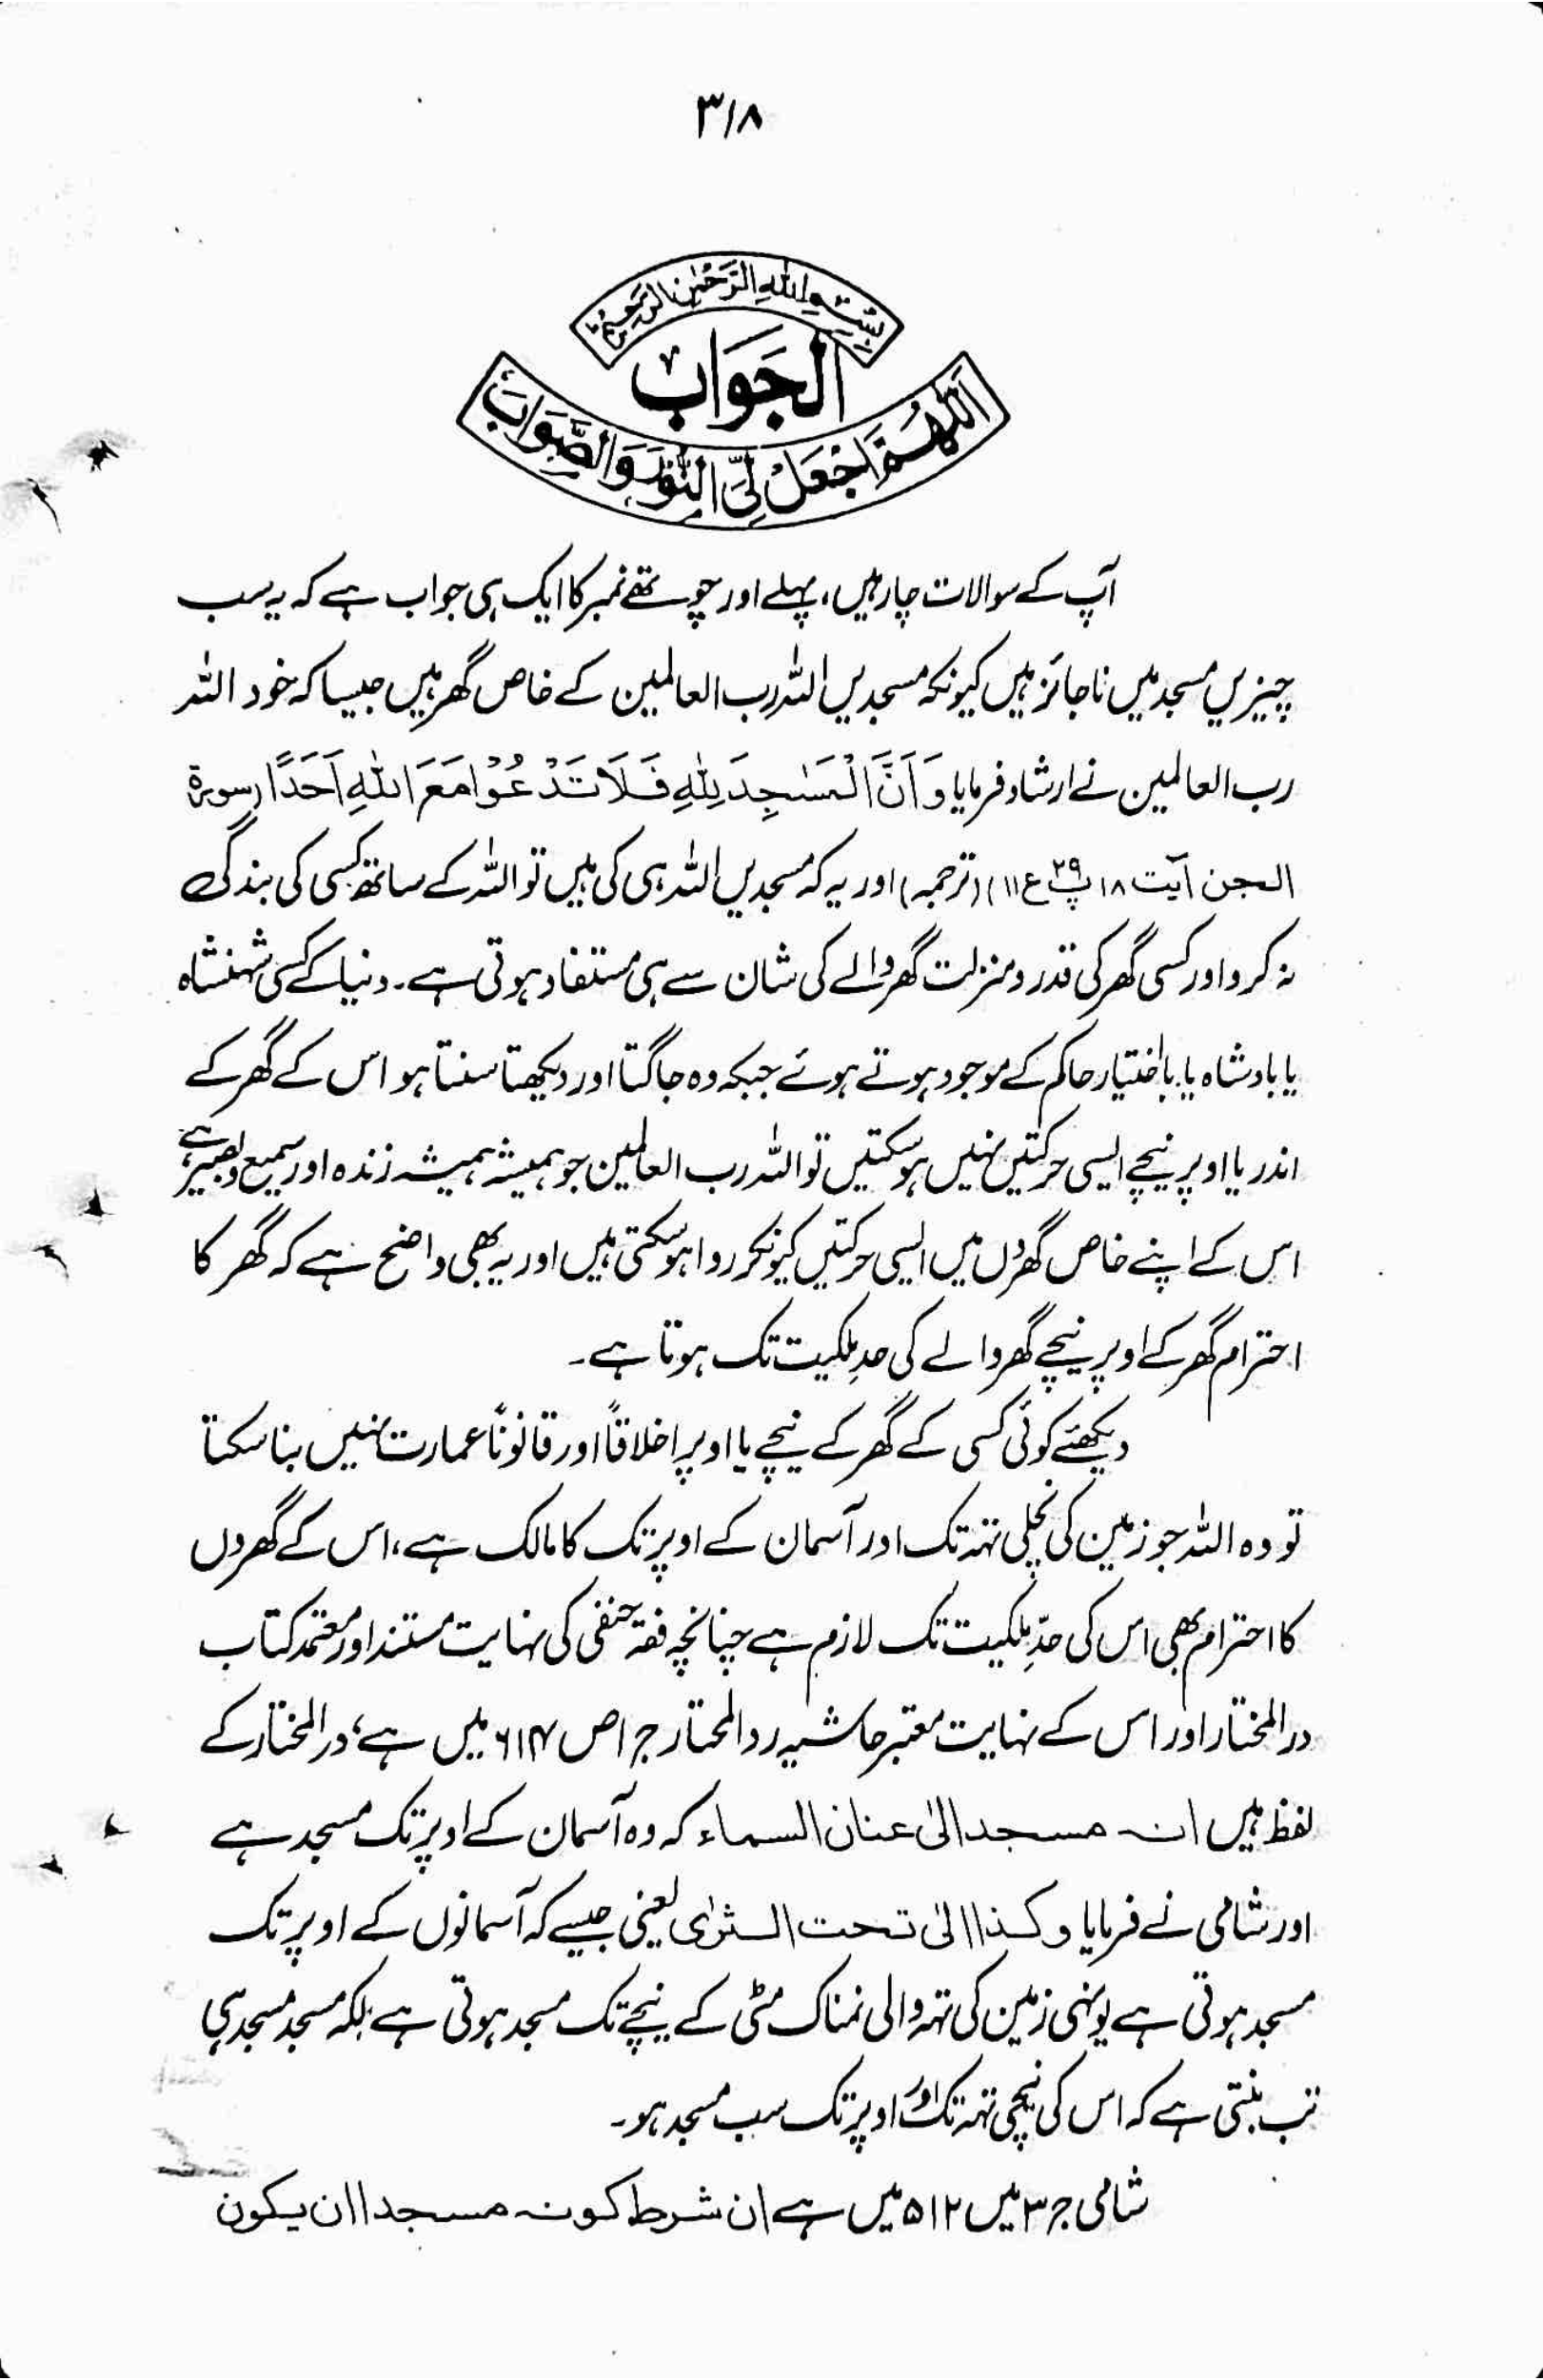 ۳۱۸
بِسْمِ اللهِ الرَّحْمٰنِ الرَّحِيْمِ
اَلْجَوَابُ
اَللّٰهُمَّ اجْعَلْ لِّيَ النُّوْرَ وَالصَّوَابَ
آپ کے سوالات چار ہیں، پہلے اور چوتھے نمبر کا ایک ہی جواب ہے کہ یہ سب
چیزیں مسجد میں ناجائز ہیں کیونکہ مسجدیں اللہ رب العالمین کے خاص گھر ہیں جیسا کہ خود اللہ
رب العالمین نے ارشاد فرمایا وَ اَنَّ الْمَسٰجِدَ لِلّٰهِ فَلَا تَدْعُوْا مَعَ اللّٰهِ اَحَدًا (سورۃ
الجن آیت ۱۸ پ ۲۹ ع ۱۱) (ترجمہ) اور یہ کہ مسجدیں اللہ ہی کی ہیں تو اللہ کے ساتھ کسی کی بندگی
نہ کرو اور کسی گھر کی قدر و منزلت گھر والے کی شان سے ہی مستفاد ہوتی ہے۔ دنیا کے کسی شہنشاہ
یا بادشاہ یا با اختیار حاکم کے موجود ہوتے ہوئے جبکہ وہ جاگتا اور دیکھتا سنتا ہو اس کے گھر کے
اندر یا اوپر نیچے ایسی حرکتیں نہیں ہو سکتیں تو اللہ رب العالمین جو ہمیشہ ہمیشہ زندہ اور سمیع و بصیر ہے،
اس کے اپنے خاص گھروں میں ایسی حرکتیں کیونکر روا ہو سکتی ہیں اور یہ بھی واضح ہے کہ گھر کا
احترام گھر کے اوپر نیچے گھر والے کی حدِ ملکیت تک ہوتا ہے۔
دیکھئے کوئی کسی کے گھر کے نیچے یا اوپر اخلاقاً اور قانوناً عمارت نہیں بنا سکتا
تو وہ اللہ جو زمین کی نچلی تہہ تک اور آسمان کے اوپر تک کا مالک ہے، اس کے گھروں
کا احترام بھی اس کی حدِّ ملکیت تک لازم ہے چنانچہ فقہ حنفی کی نہایت مستند اور معتمد کتاب
درالمختار اور اس کے نہایت معتبر حاشیہ ردالمحتار ج ۱ ص ۶۱۴ میں ہے، درالمختار کے
لفظ ہیں انہ مسجد الیٰ عنان السماء کہ وہ آسمان کے اوپر تک مسجد ہے
اور شامی نے فرمایا و کذا الیٰ تحت الثریٰ یعنی جیسے کہ آسمانوں کے اوپر تک
مسجد ہوتی ہے یونہی زمین کی تہہ والی نمناک مٹی کے نیچے تک مسجد ہوتی ہے بلکہ مسجد مسجد ہی
تب بنتی ہے کہ اس کی نچی تہہ تک اور اوپر تک سب مسجد ہو۔
شامی ج ۳ میں ۵۱۲ میں ہے ان شرط کونہ مسجدا ان یکون